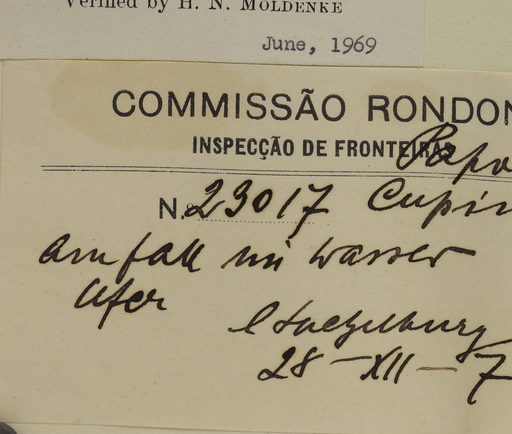 Verified by H. N. MOLDENKE
June, 1969
COMMISSÃO RONDON
INSPECÇÃO DE FRONTEIRAS
N. 23017
am fall im wasser
Ufer
28-XII-7